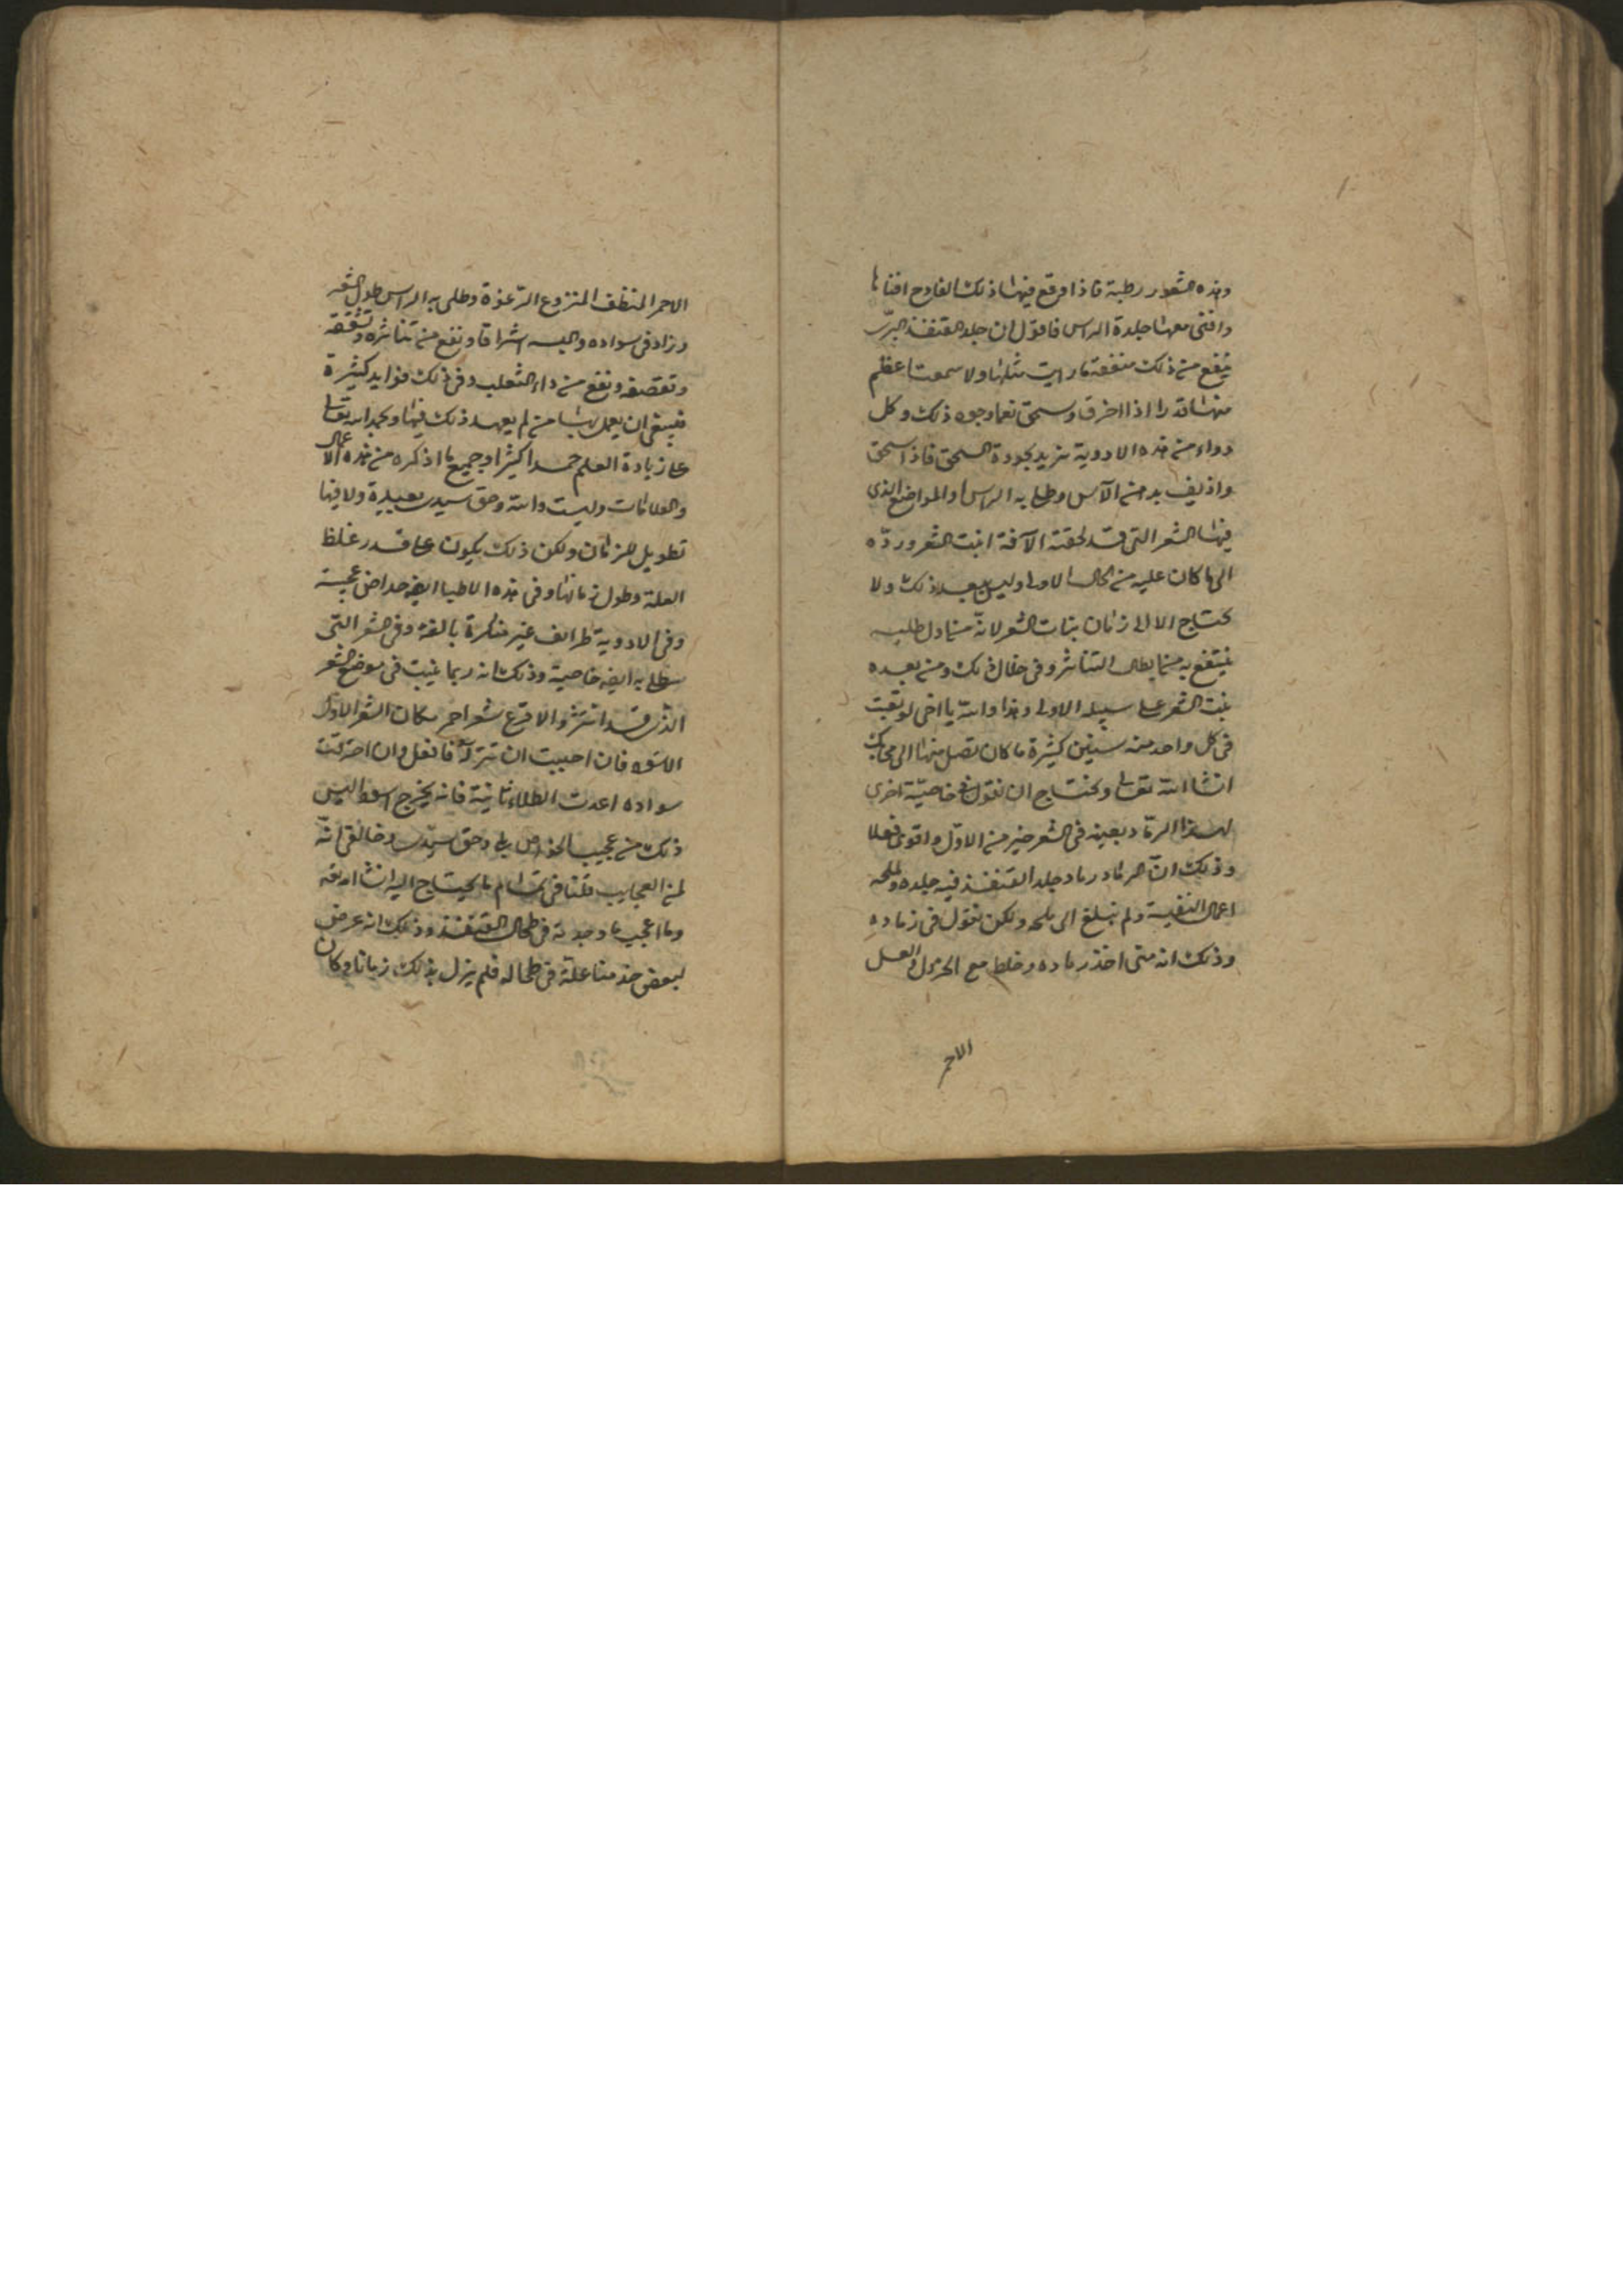 وهذه الشعور رطبة فاذا وقع فيها ذلك الفادح افناها
وافنى معها جلدة الراس فاقول ان جلد القنفذ البرّى
ينفع من ذلك منفعة ما رايت مثلها ولا سمعت اعظم
منها قدرا اذا احرق وسحق نعما وجوه ذلك وكل
دواء من هذه الادوية يزيد بجودة السحق فاذا سحق
واذيف بدهن الآس وطلى به الراس والمواضع الذى
فيها الشعر التى قد لحقته الآفة انبت الشعر وردّه
الى ما كان عليه من الحال الاولى وليس يبعد ذلك ولا
يحتاج الا الى زمان بنات الشعر لانّه من اول طليه
ينتفع به منما يطال التناثر وفى خلال ذلك ومن بعده
ينبت الشعر على سبيله الاولى وهذا والله يا اخى لو تعبت
فى كل واحد منه سنين كثيرة ما كان تصل منها الى محابك
انشا الله تعالى ونحتاج ان نقول فى خاصيّة اخرى
لهذا الرماد بعينه فى الشعر خير من الاوّل واقوى فعلا
وذلك انّ رماد جلد القنفذ فيه جلده وملحه
اعمال النفيسة ولم نبلغ الى ملحه ولكن نقول فى رماده
وذلك انه متى اخذ رماده وخلط مع الخردل والعسل
الاحمر
الاحمر المنظف المنزوع الرّغوة وطلى به الراس طول الشعر
وزاد فى سواده والبسه اشراقا ونفع من تناثره وتشققه
وتقصفه ونفع من داء الثعلب وفى ذلك فوايد كثيرة
فينبغى ان يعمل بها من لم يعهد ذلك فيها ونحمد الله تعالى
على زيادة العلم حمدا كثيرا وجميع ما اذكره من هذه الاعمال
والعلامات وليست والله وحق سيدى بعيدة ولا فيها
تطويل للزمان ولكن ذلك يكون على قدر غلظ
العلة وطول زمانها وفى هذه الاطيا ايضا خواص عجيبة
وفى الادوية طرائف غير منكرة بالفة وفى الشعر التى
يطلى به ايضا خاصية وذلك انه ربما ينبت فى موضع الشعر
الذى قد انتثر والاقرع شعر احمر مكان الشعر الاوّل
الاسود فان احببت ان تتركه فافعل وان احببت
سواده اعدت الطلاء ثانية فانه يخرج اسود اليس
ذلك من عجيب الخواص بلى وحق سيّدى وخالقى انّه
لمن العجايب قلنا فى تمام ما يحتاج اليه انشا الله تعالى
وما اعجب ما وجدته فى طحال القنفذ وذلك انه عرض
لبعض خدمنا علة فى طحاله فلم يزل بذلك زمانا وكان